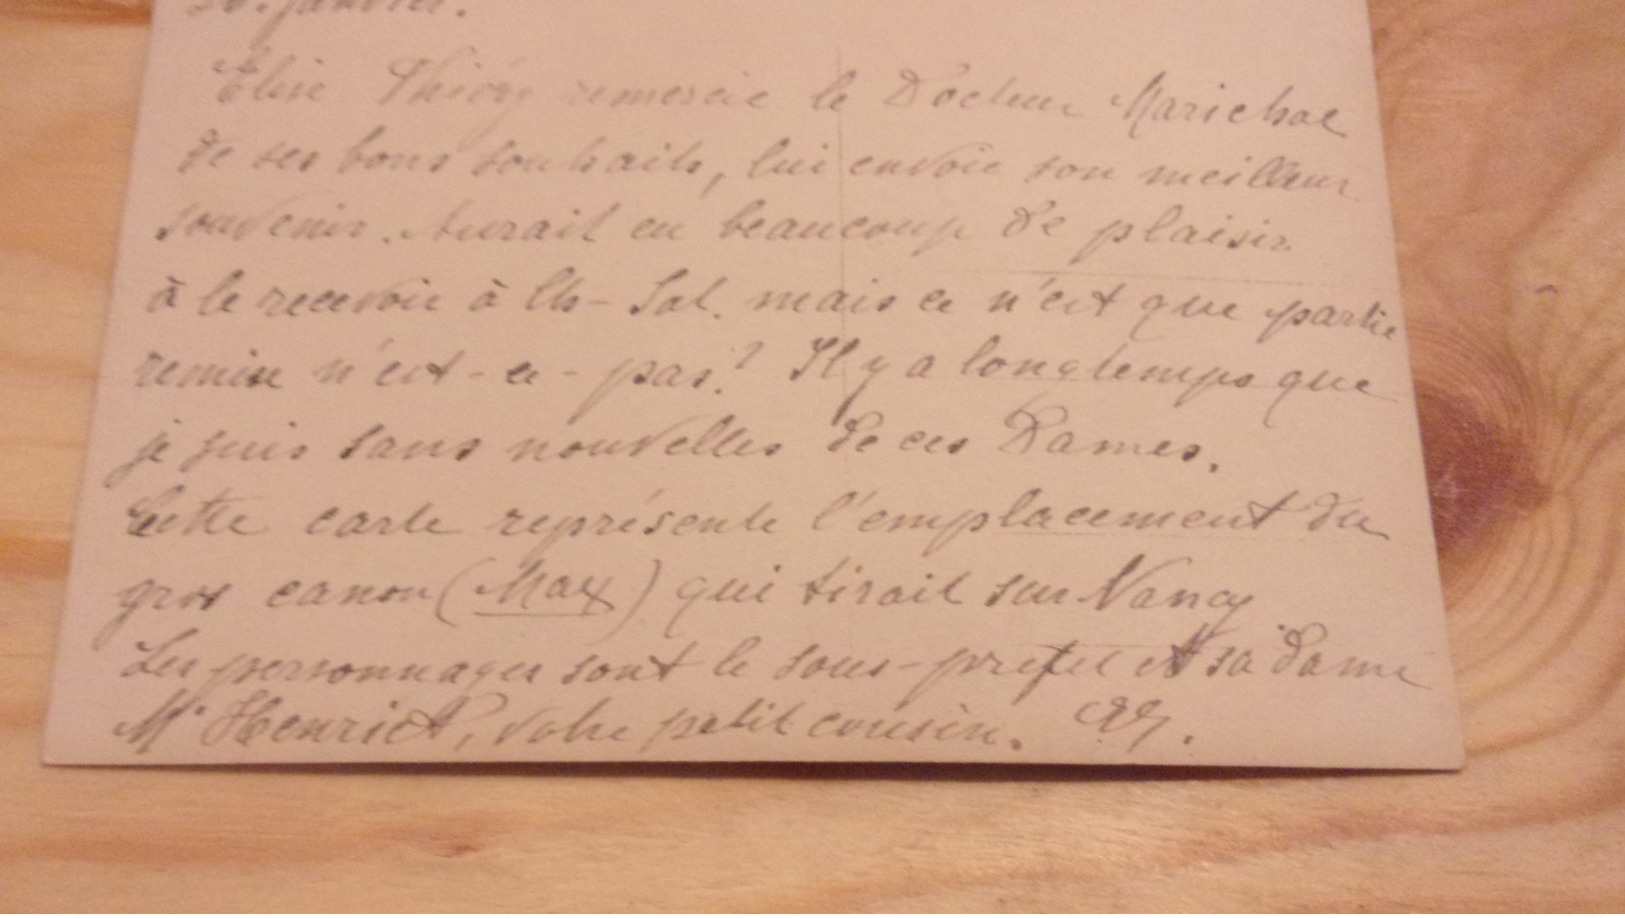 janvier.
Elise Thiéry remercie le Docteur Marichal
de ses bons souhaits, lui envoie son meilleur
souvenir. Aurait eu beaucoup de plaisir
à le recevoir à Ch-Sal. mais ce n'est que partie
remise n'est-ce-pas? Il y a longtemps que
je suis sans nouvelles de ces Dames.
Cette carte représente l'emplacement du
gros canon (Max) qui tirait sur Nancy
Les personnages sont le sous-prefet et sa dame
Mr Henriet, votre petit cousin.